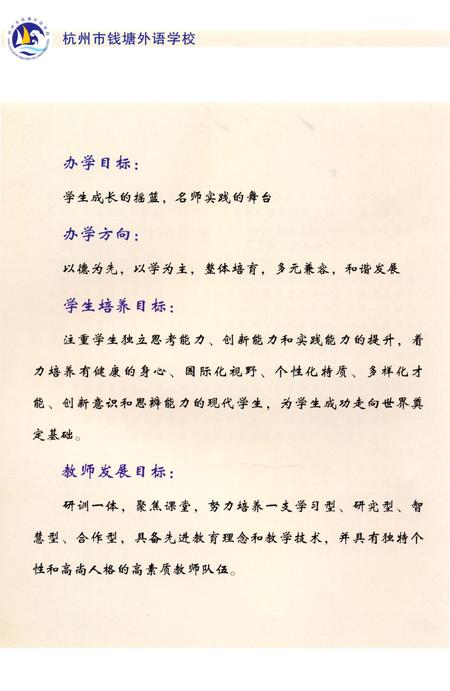 杭州市钱塘外语学校
办学目标：
学生成长的摇篮，名师实践的舞台
办学方向：
以德为先，以学为主，整体培育，多元兼容，和谐发展
学生培养目标：
注重学生独立思考能力、创新能力和实践能力的提升，着
力培养有健康的身心、国际化视野、个性化特质、多样化才
能、创新意识和思辨能力的现代学生，为学生成功走向世界奠
定基础。
教师发展目标：
研训一体，聚焦课堂，努力培养一支学习型、研究型、智
慧型、合作型，具备先进教育理念和教学技术，并具有独特个
性和高尚人格的高素质教师队伍。